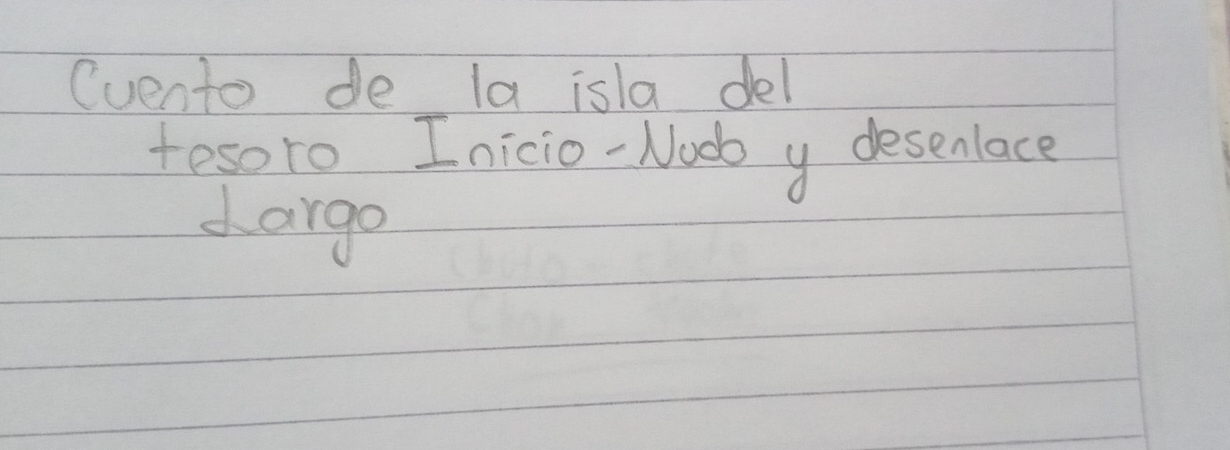 Cuento de la isla del
tesoro Inicio-Nudo y desenlace
Largo